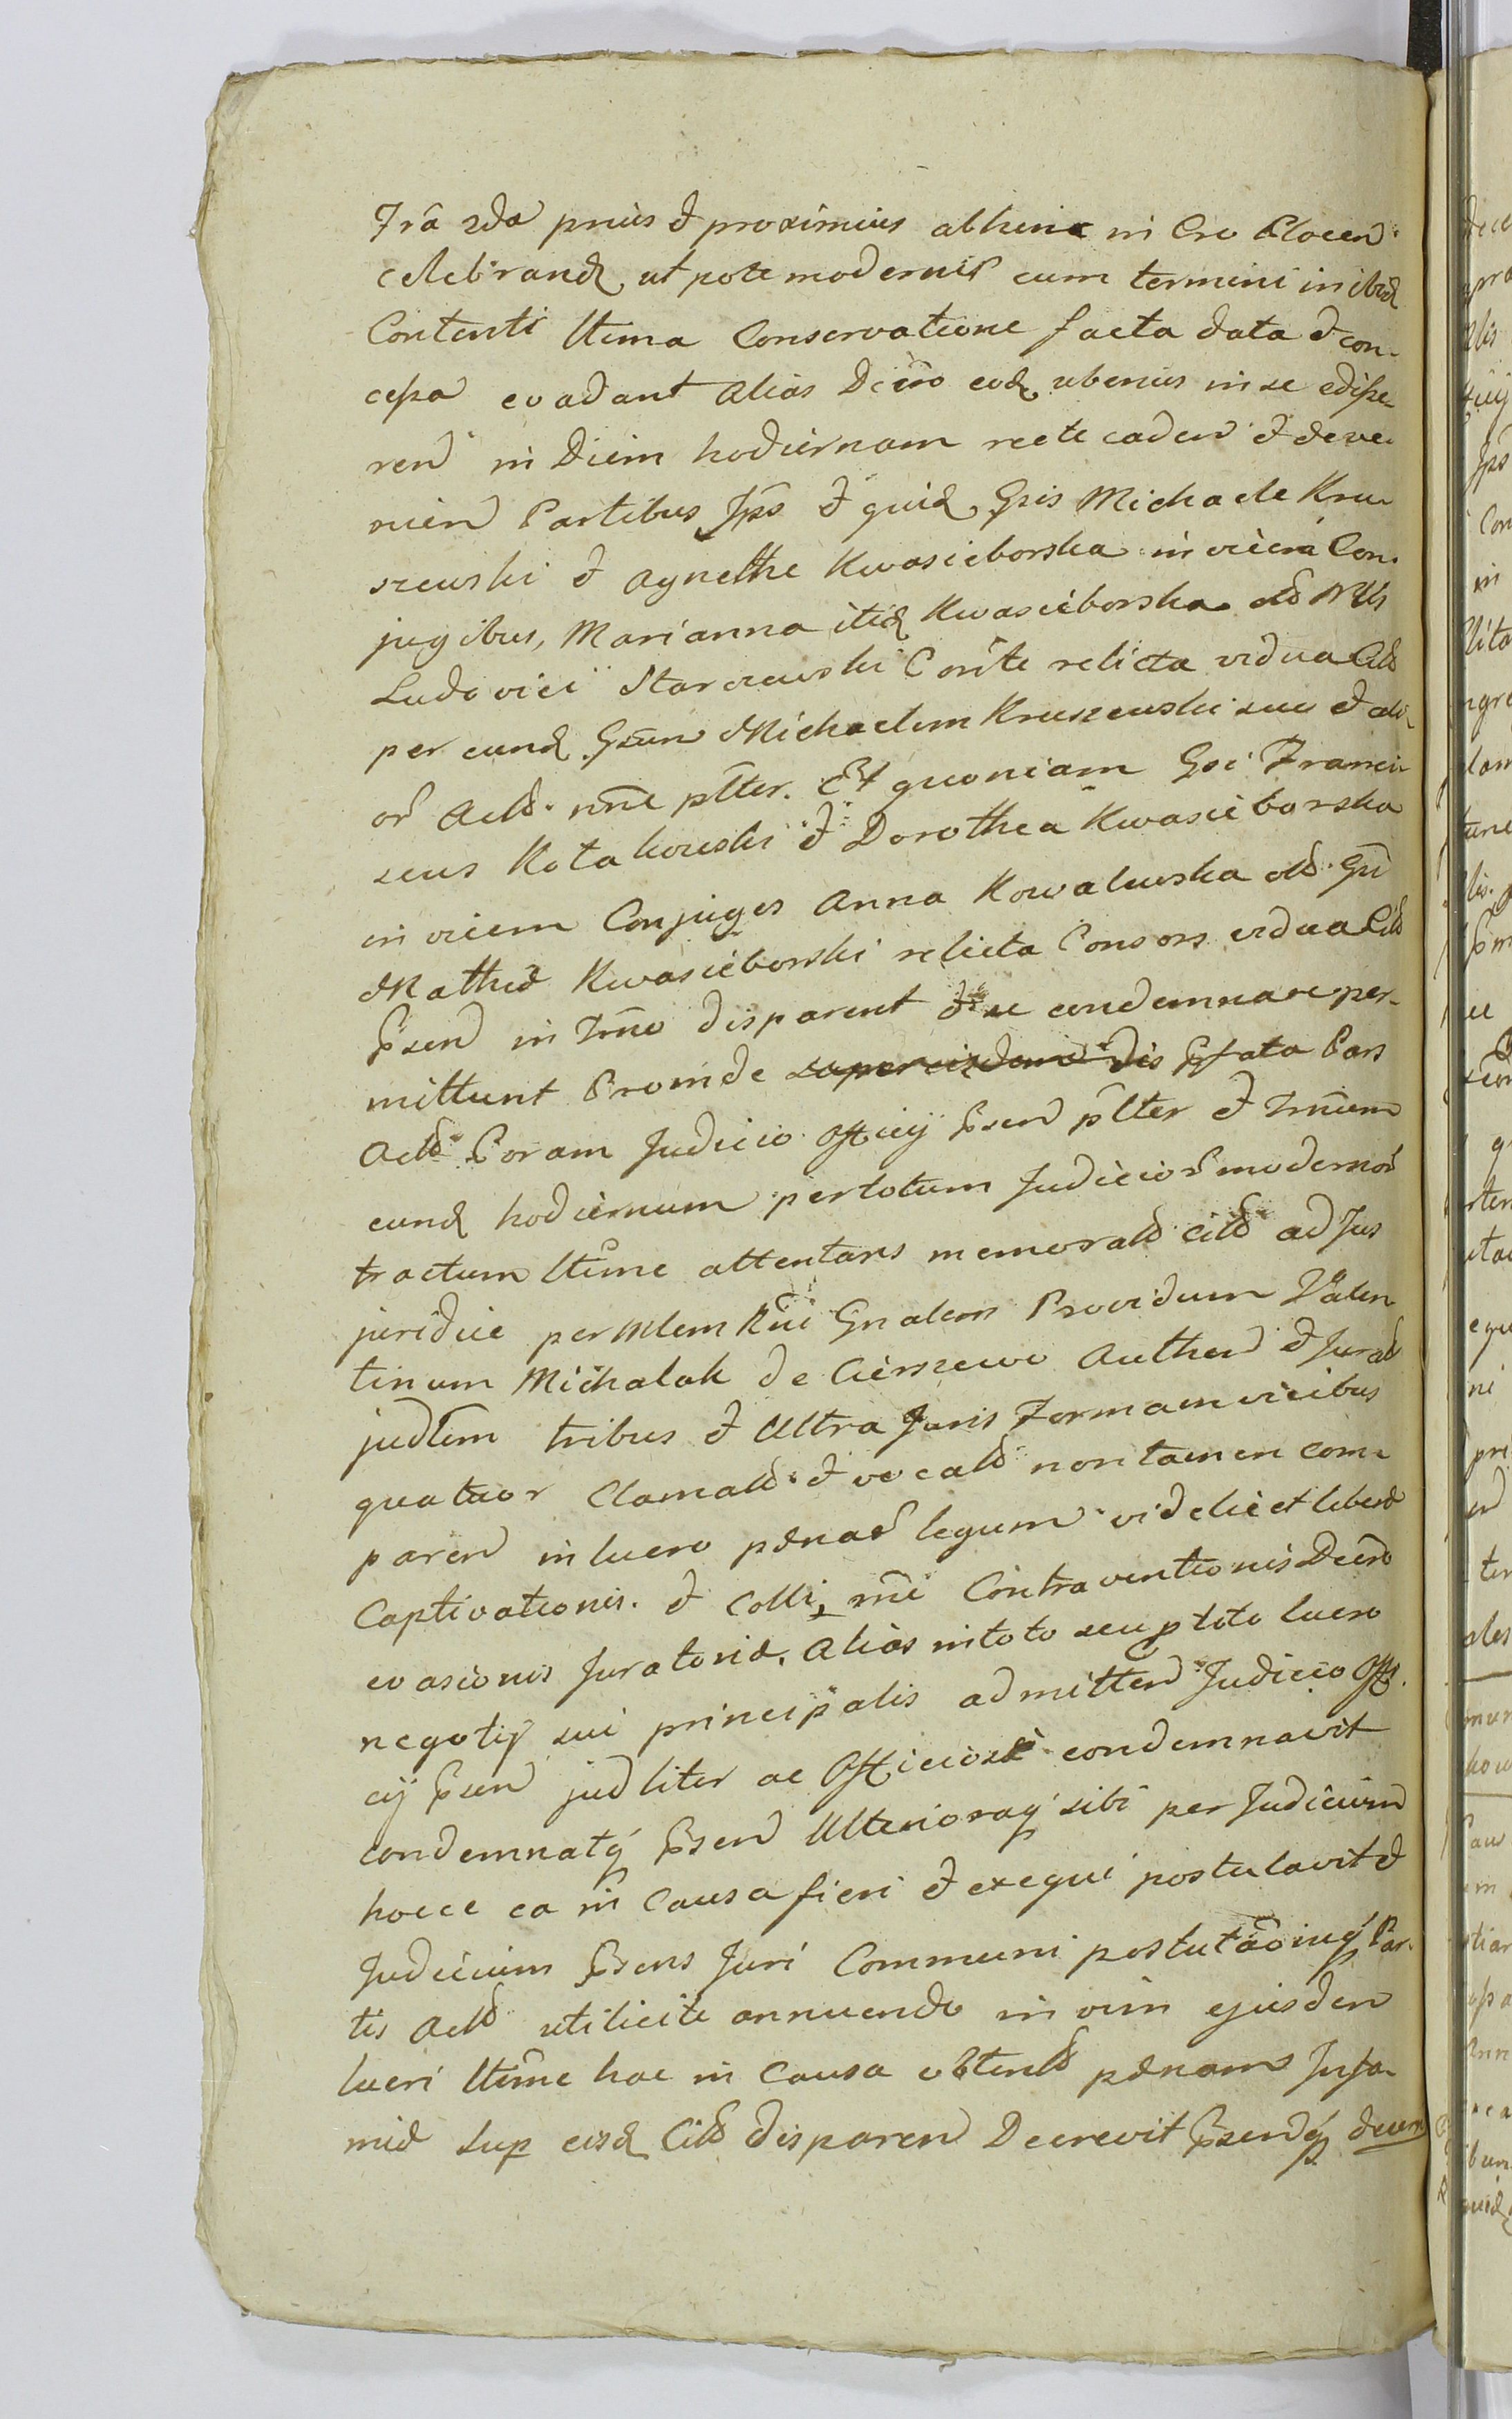 Tra 2da prius & proximius abhinc in Cro Plocen
celebrand ut pote modernis cum termini in ibid
Contenti ltima Conservatione facta data & con-
cessa evadant alias Dcro eod uberius in se edisse-
ren in Diem hodiernam recte caden & deve-
nien Partibus Ips & quid Gsis Michaele Kru-
szewski & Agnethe Kwasieborska invicem Con-
jugibus, Marianna itid Kwasieborska old Mtis
Ludovici Starczewski Conte relicta vidua Citt
per eund Gsum Michaelem Kruszewski suo & ali-
or Actt nne pltter. Et quoniam Gsi Franci-
scus Kotakowski & Dorothea Kwasieborska
in vicem Conjuges Anna Kowalewska olb Gsi
Mathiæ Kwasieborski relicta Consors vidua Citt
Psen in Tmno disparent & se condemnare per-
mittunt Proinde super eisdem dis Psfata Pars
Actt Coram Judicio Officij Psen pltter & Tmnum
eund hodiernum per totum Judicior modernor
tractum ltime attentans memoratt citt ad Jus
juridice per Mlem Rni Gnalem Providum Valen
tinum Michalak de Cierszewo Authen & Jurat
judlem tribus & Ultra Juris Formam vicibus
quatuor Clamatt & vocatt non tamen com-
paren in lucro pænar legum videlicet liberæ
Captivationis & Colli, rni Contraventionis Decro
evasionis Juratoriæ, Alias in toto seu p toto lucro
negotij sui principalis admitten Judicio Offi-
cij Psen judliter ac Officiose condemnavit
condemnatq Psen Ulterioraq sibi per Judicium
hocce ea in Causa fieri & exequi postulavit &
Judicium Psens Juri Communi postulaoniq Par-
tis Actt utilicite annuendo in vim ejusdem
lucri ltime hac in Causa obtentt pænam Infa-
miæ Sup eisd Citt disparen Decrevit Psenq decern